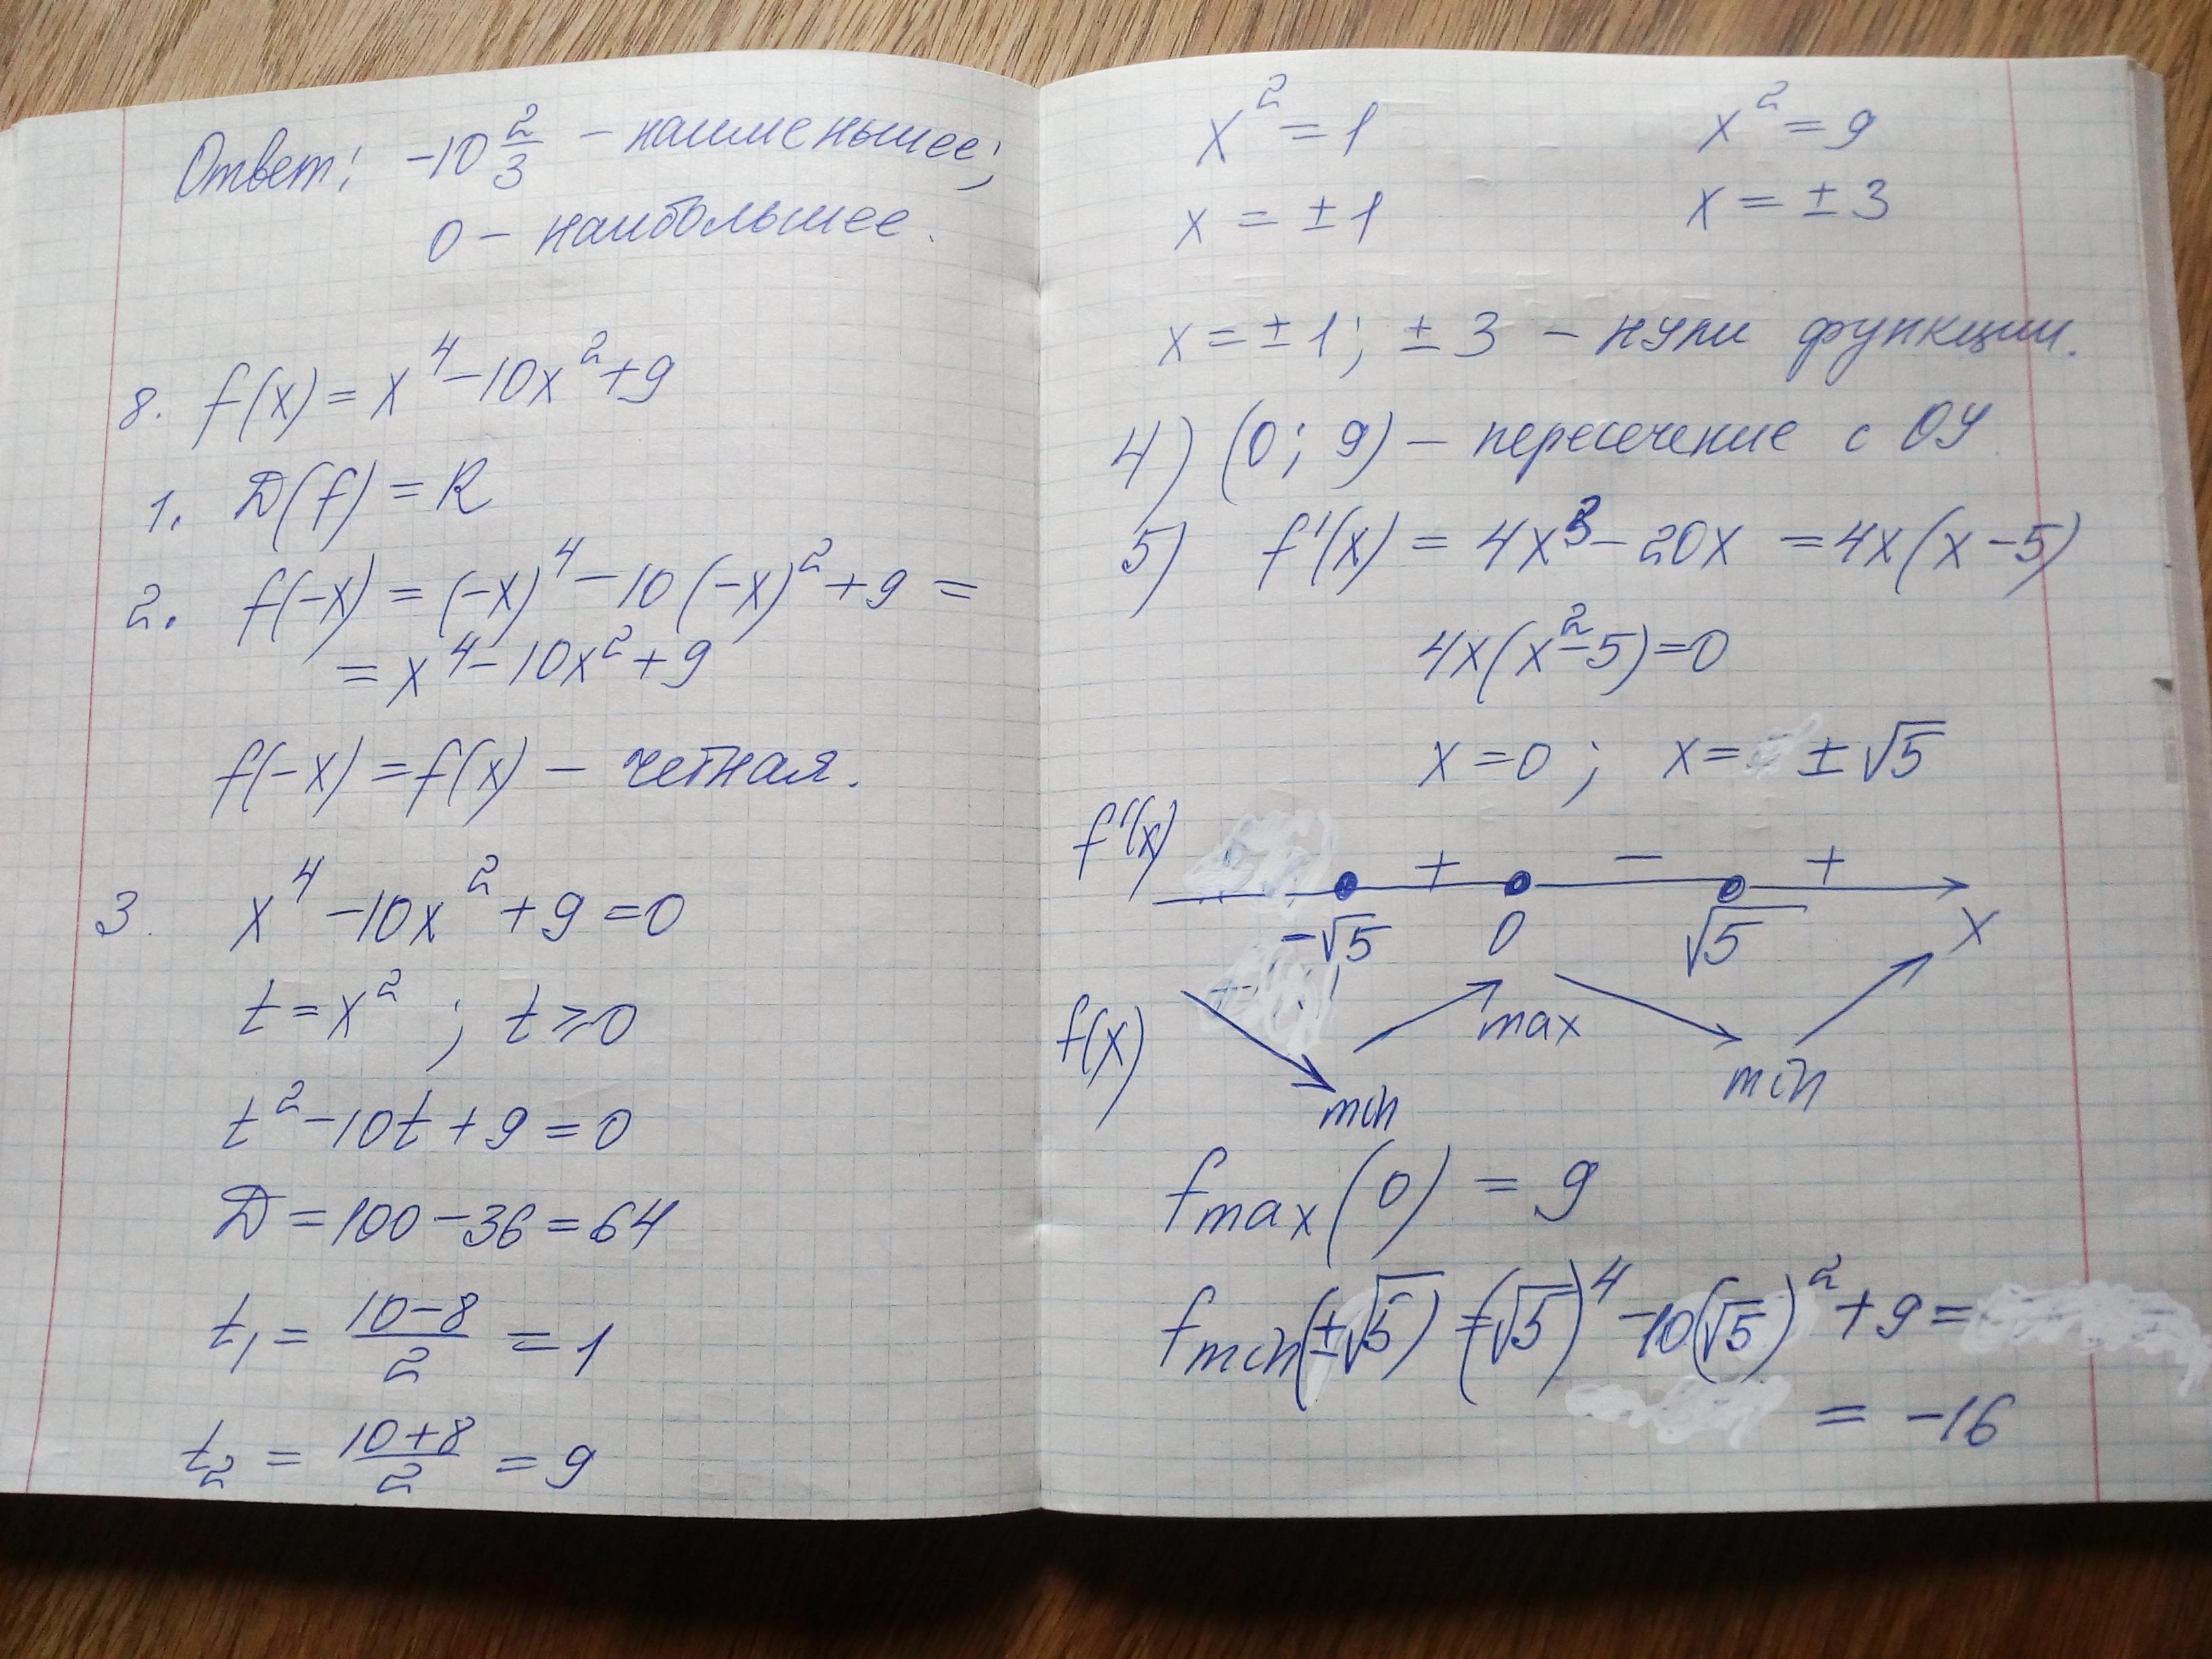 Ответ: -10 2/3 - наименьшее;
0 - наибольшее.
8. f(x) = x⁴-10x²+9
1. D(f) = R
2. f(-x) = (-x)⁴-10(-x)²+9 =
= x⁴-10x²+9
f(-x) = f(x) - четная.
3. x⁴-10x²+9=0
t=x² ; t⩾0
t²-10t+9=0
D=100-36=64
t₁ = (10-8)/2 = 1
t₂ = (10+8)/2 = 9
x²=1 x²=9
x=±1 x=±3
x=±1; ±3 - нули функции.
4) (0; 9) - пересечение с OY
5) f'(x) = 4x³-20x =4x(x-5)
4x(x²-5)=0
x=0; x= ±√5
f'(x) + - +
-√5 0 √5 x
f(x) min max min
fmax(0) = 9
fmin(±√5) =(√5)⁴-10(√5)²+9=
= -16